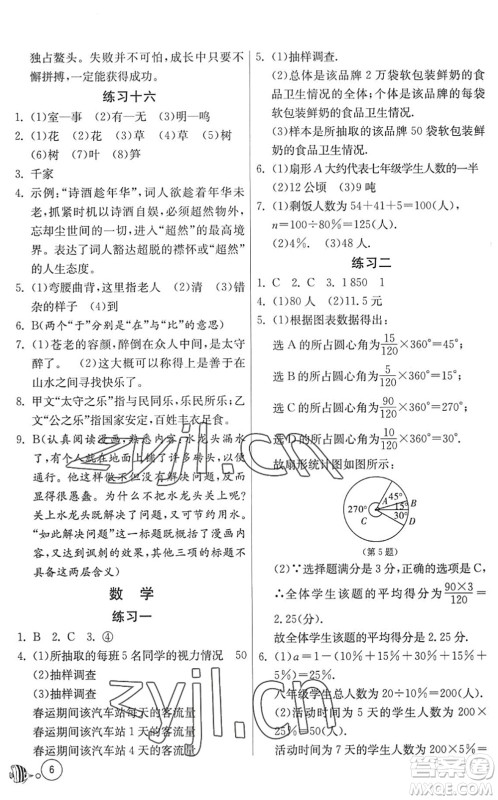 独占鳌头。失败并不可怕，成长不可少。只要不
懈拼搏，一定能获得成功。
练习十六
1. (1)室—事　(2)有—无　(3)明—鸣
2. (1)花　(2)花　(3)草　(4)草　(5)树
(6)树　(7)叶　(8)笋
3. 千家
4. 示例：“诗酒趁年华”，写诗饮酒来忘却年华老
去，抓紧时机以诗酒自娱，必能超然物外，
忘却尘世间的一切，以达到“超然”的最高境
界。表达了词人豁达超脱的襟怀或“超然”
的人生态度。
5. (1)弯腰曲背，这里指老人　(2)清　(3)错
杂的样子　(4)归
6. B(两个“于”分别是“在”和“比”的意思)
7. (1)苍老的容颜，醉倒在众人中间，是太守
醉了。　(2)这大概可以称得上是善于在
山水之间寻找快乐了。
8. 甲文“太守之乐”指与民同乐，乐民之乐；乙
文“公之乐”指国家安定，百姓丰衣足食。
9. B(认真阅读漫画，我们发现，水龙头漏水
了，有人
显得很愚蠢。为什么不把水龙头关上呢？
关上水龙头
“如此解决问题”这一标题既概括了漫画内
容，又达到讽刺的效果，而其他的标题不具
备这两层含义)
数学
练习一
1. B　2. C　3. ④
4. (1)所抽取的每班 5 名同学的视力情况　50
(2)抽样调查
(3)抽样调查
春运期间该汽车站每天的客流量
春运期间该汽车站 4 天的客流量
春运期间该汽车站 1 天的客流量
5. (1)抽样调查.
(2)总体是该品牌 2 万袋软包装鲜奶的食
品卫生情况.　个体是该品牌的每袋
软包装鲜奶的食品卫生情况.
(3)样本是所抽取的该品牌 50 袋软包装鲜
奶的食品卫生情况.
6. (1)扇形 A 大约代表七年级学生人数的一半
(2)12 公顷　(3)9 吨
7. (1)剩饭人数为 54+41+5=100(人)，
n=100÷80%=125(人).
(2)4%.　(3)48 人.
练习二
1. C　2. C　3. 1 850　1
4. (1)80 人　(2)11.5 元
5. (1)根据图表数据得出：
选 A 的所占圆心角为 15/120×360°=45°；
选 B 的所占圆心角为 5/120×360°=15°；
选 C 的所占圆心角为 90/120×360°=270°；
选 D 的所占圆心角为 10/120×360°=30°.
故扇形统计图如图所示：
45°
A
270°
15°
B
30°
C
D
(第 5 题)
(2)∵选择题满分是 3 分，正确的是 C，
∴全体学生该题的平均得分为 (90×3)/120=
2.25(分).
故全体学生该题的平均得分是 2.25 分.
6. (1)a=1-(10%+15%+30%+15%+
5%)=25%，
八年级学生总人数为 20÷10%=200(人).
(2)活动时间为 5 天的学生人数为 200×
25%=50(人)，
活动时间为 7 天的学生人数为 200×5%=
6
zyjl.cn